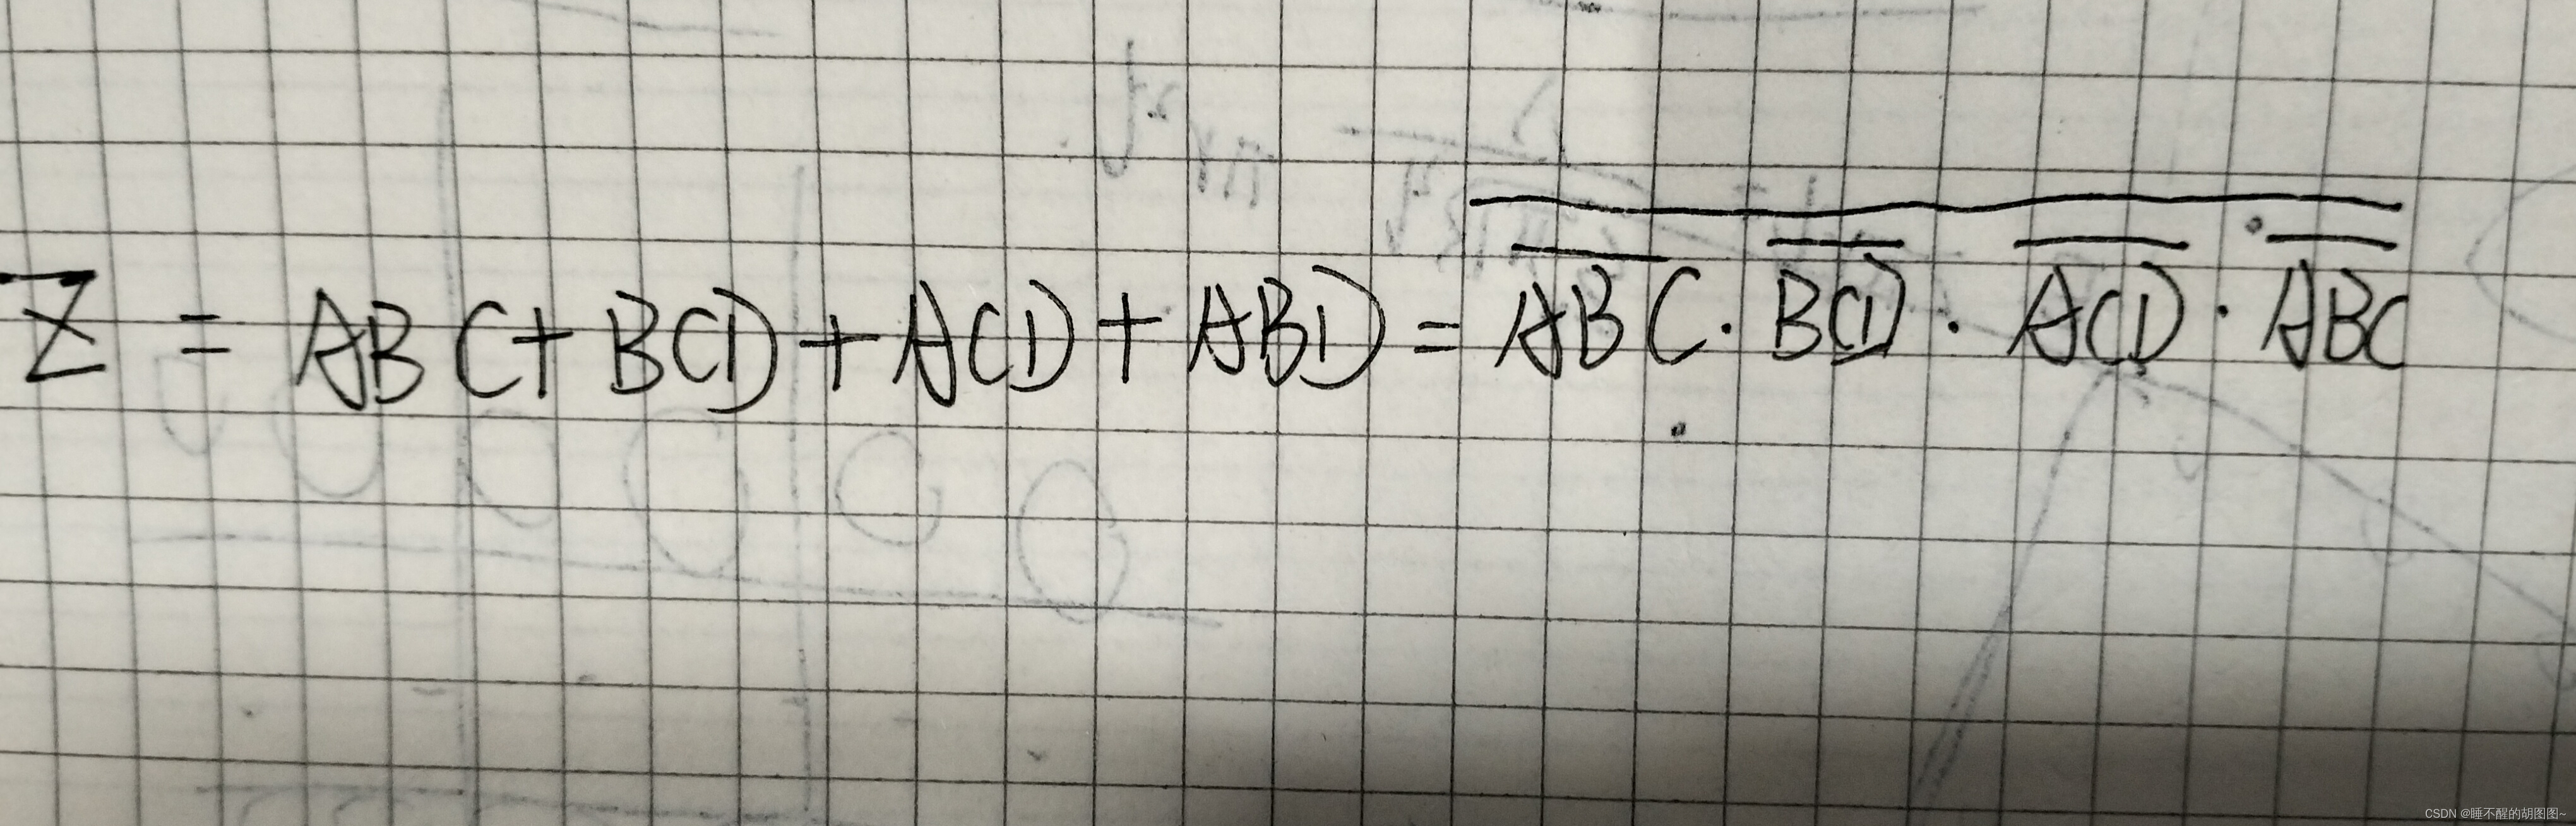 Z = ABC + BCD + ACD + ABD = \overline{\overline{ABC} · \overline{BCD} · \overline{ACD} · \overline{ABC}}
CSDN @睡不醒的胡图图~